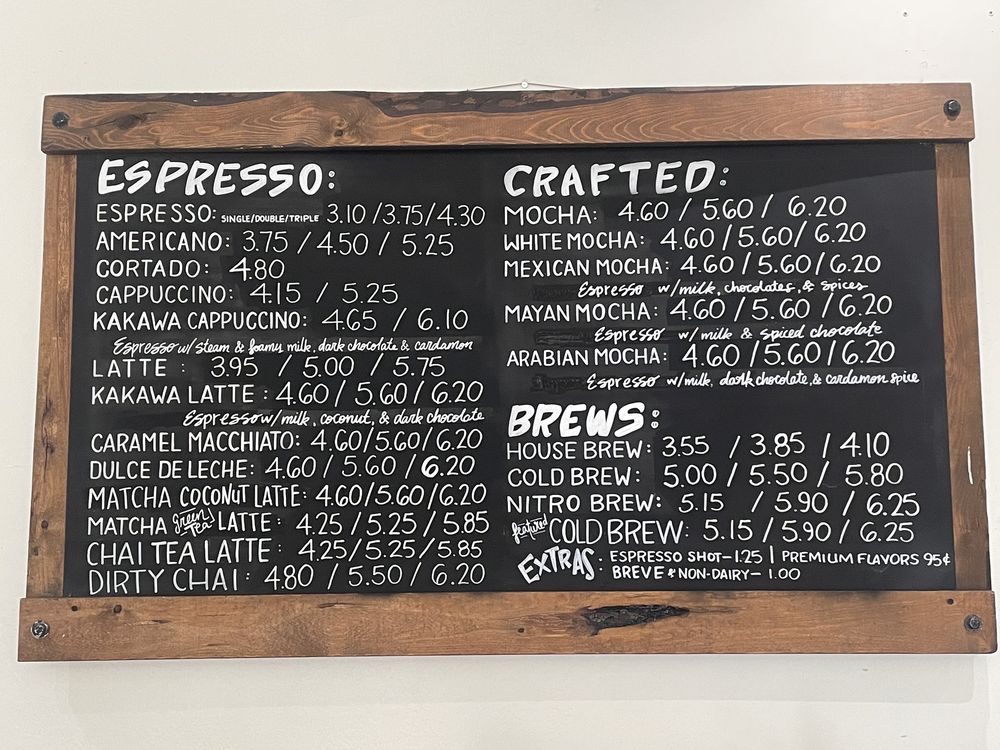 ESPRESSO:
ESPRESSO: SINGLE/DOUBLE/TRIPLE 3.10 / 3.75 / 4.30
AMERICANO: 3.75 / 4.50 / 5.25
CORTADO: 4.80
CAPPUCCINO: 4.15 / 5.25
KAKAWA CAPPUCCINO: 4.65 / 6.10
Espresso w/ steam & foamy milk, dark chocolate & cardamon
LATTE : 3.95 / 5.00 / 5.75
KAKAWA LATTE : 4.60 / 5.60 / 6.20
Espresso w/ milk, coconut, & dark chocolate
CARAMEL MACCHIATO: 4.60/5.60/6.20
DULCE DE LECHE: 4.60 / 5.60 / 6.20
MATCHA COCONUT LATTE: 4.60/5.60/6.20
MATCHA green tea LATTE : 4.25 / 5.25 / 5.85
CHAI TEA LATTE : 4.25/5.25/5.85
DIRTY CHAI : 4.80 / 5.50 / 6.20
CRAFTED:
MOCHA: 4.60 / 5.60 / 6.20
WHITE MOCHA: 4.60 / 5.60 / 6.20
MEXICAN MOCHA: 4.60 / 5.60 / 6.20
Espresso w/milk, chocolates, & spices
MAYAN MOCHA: 4.60 / 5.60 / 6.20
Espresso w/ milk & spiced chocolate
ARABIAN MOCHA: 4.60 / 5.60 / 6.20
Espresso w/milk, dark chocolate, & cardamon spice
BREWS:
HOUSE BREW: 3.55 / 3.85 / 4.10
COLD BREW: 5.00 / 5.50 / 5.80
NITRO BREW: 5.15 / 5.90 / 6.25
featured COLD BREW: 5.15 / 5.90 / 6.25
EXTRAS: ESPRESSO SHOT-1.25 | PREMIUM FLAVORS 95¢
BREVE & NON-DAIRY- 1.00